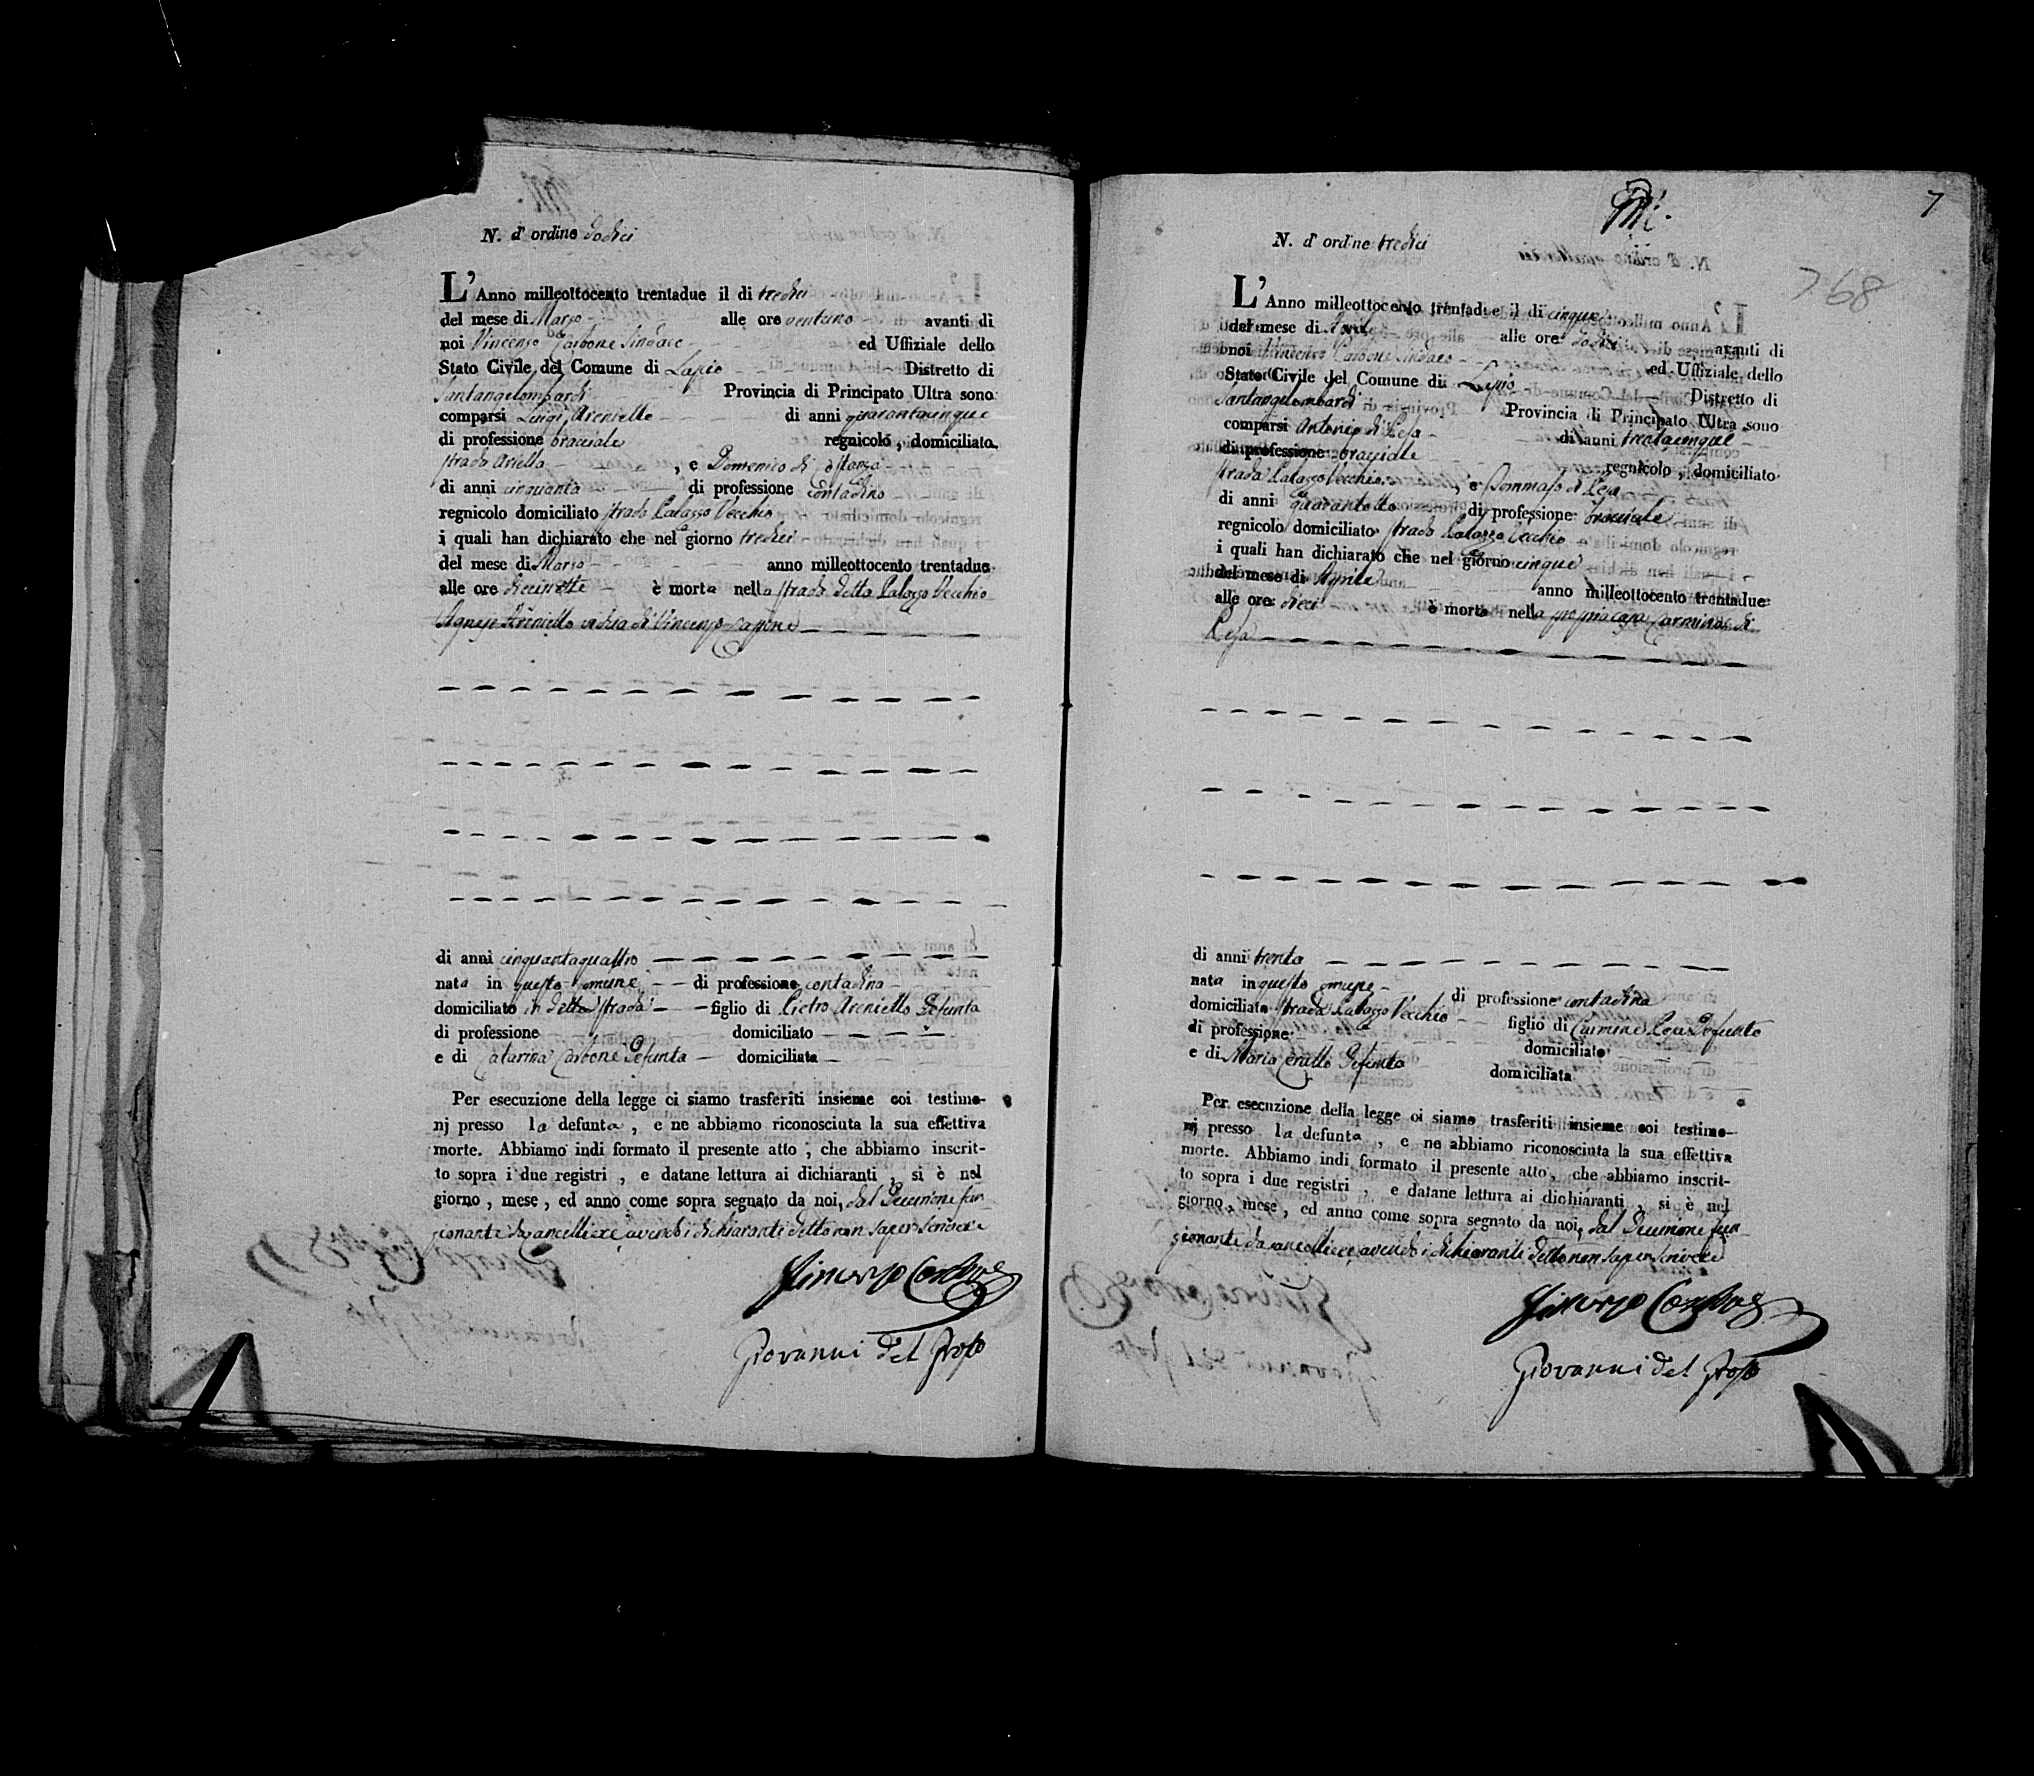 N. d' ordine dodici
L'Anno milleottocento trentadue il di tredici
del mese di Marzo alle ore ventuno avanti di
noi Vincenzo Carbone Sindaco ed Uffiziale dello
Stato Civile del Comune di Lapio Distretto di
Santangelombardi Provincia di Principato Ultra sono
comparsi Luigi Areniello di anni quarantacinque
di professione bracciale regnicolo, domiciliato
strada Ariella, e Domenico di Stanzo
di anni cinquanta di professione contadino
regnicolo domiciliato strada Palazzo Vecchio
i quali han dichiarato che nel giorno tredici
del mese di Marzo anno milleottocento trentadue
alle ore diecisette è morta nella strada detta Palazzo Vecchio
Agnese Areniello vedova di Vincenzo
di anni cinquantaquattro
nata in questo comune di professione contadina
domiciliato in detta strada figlio di Pietro Areniello Defunto
di professione domiciliato
e di Catarina Carbone Defunta domiciliata
Per esecuzione della legge ci siamo trasferiti insieme coi testimo-
nj presso la defunta, e ne abbiamo riconosciuta la sua effettiva
morte. Abbiamo indi formato il presente atto, che abbiamo inscrit-
to sopra i due registri, e datane lettura ai dichiaranti, si è nel
giorno, mese, ed anno come sopra segnato da noi, dal Decurione fun
zionante da cancelliere avendo i dichiaranti detto non saper scrivere
Vincenzo Carbone
Giovanni del Grosso
7
768
N. d' ordine tredici
L'Anno milleottocento trentadue il di cinque
del mese di Aprile alle ore dodici avanti di
noi Vincenzo Carbone Sindaco ed Uffiziale dello
Stato Civile del Comune di Lapio Distretto di
Santangelombardi Provincia di Principato Ultra sono
comparsi Antonio di Lesa di anni trentacinque
di professione bracciale regnicolo, domiciliato
strada Palazzo Vecchio, e Tommaso di Lesa
di anni quarantotto di professione bracciale
regnicolo domiciliato strada Palazzo Vecchio
i quali han dichiarato che nel giorno cinque
del mese di Aprile anno milleottocento trentadue
alle ore dieci è morta nella propria casa Carmina di
Lesa
di anni trenta
nata in questo comune di professione contadina
domiciliata strada Palazzo Vecchio figlio di Carmine Lesa Defunto
di professione domiciliato
e di Maria Defunta domiciliata
Per esecuzione della legge ci siamo trasferiti insieme coi testimo-
nj presso la defunta, e ne abbiamo riconosciuta la sua effettiva
morte. Abbiamo indi formato il presente atto, che abbiamo inscrit-
to sopra i due registri, e datane lettura ai dichiaranti, si è nel
giorno, mese, ed anno come sopra segnato da noi, dal Decurione fun
zionante da cancelliere avendo i dichiaranti detto non saper scrivere
Vincenzo Carbone
Giovanni del Grosso